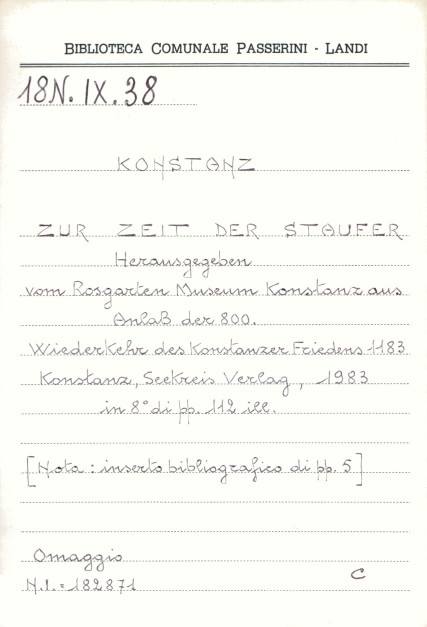 BIBLIOTECA COMUNALE PASSERINI - LANDI
18N.IX.38
KONSTANZ
ZUR ZEIT DER STAUFER
Herausgegeben
vom Rosgarten Museum Konstanz aus
Anlaß der 800.
Wiederkehr des Konstanzer Friedens 1183
Konstanz, Seekreis Verlag, 1983
in 8° di pp. 112 ill.
[Nota: inserto bibliografico di pp. 5]
Omaggio
N.I. = 182871
C